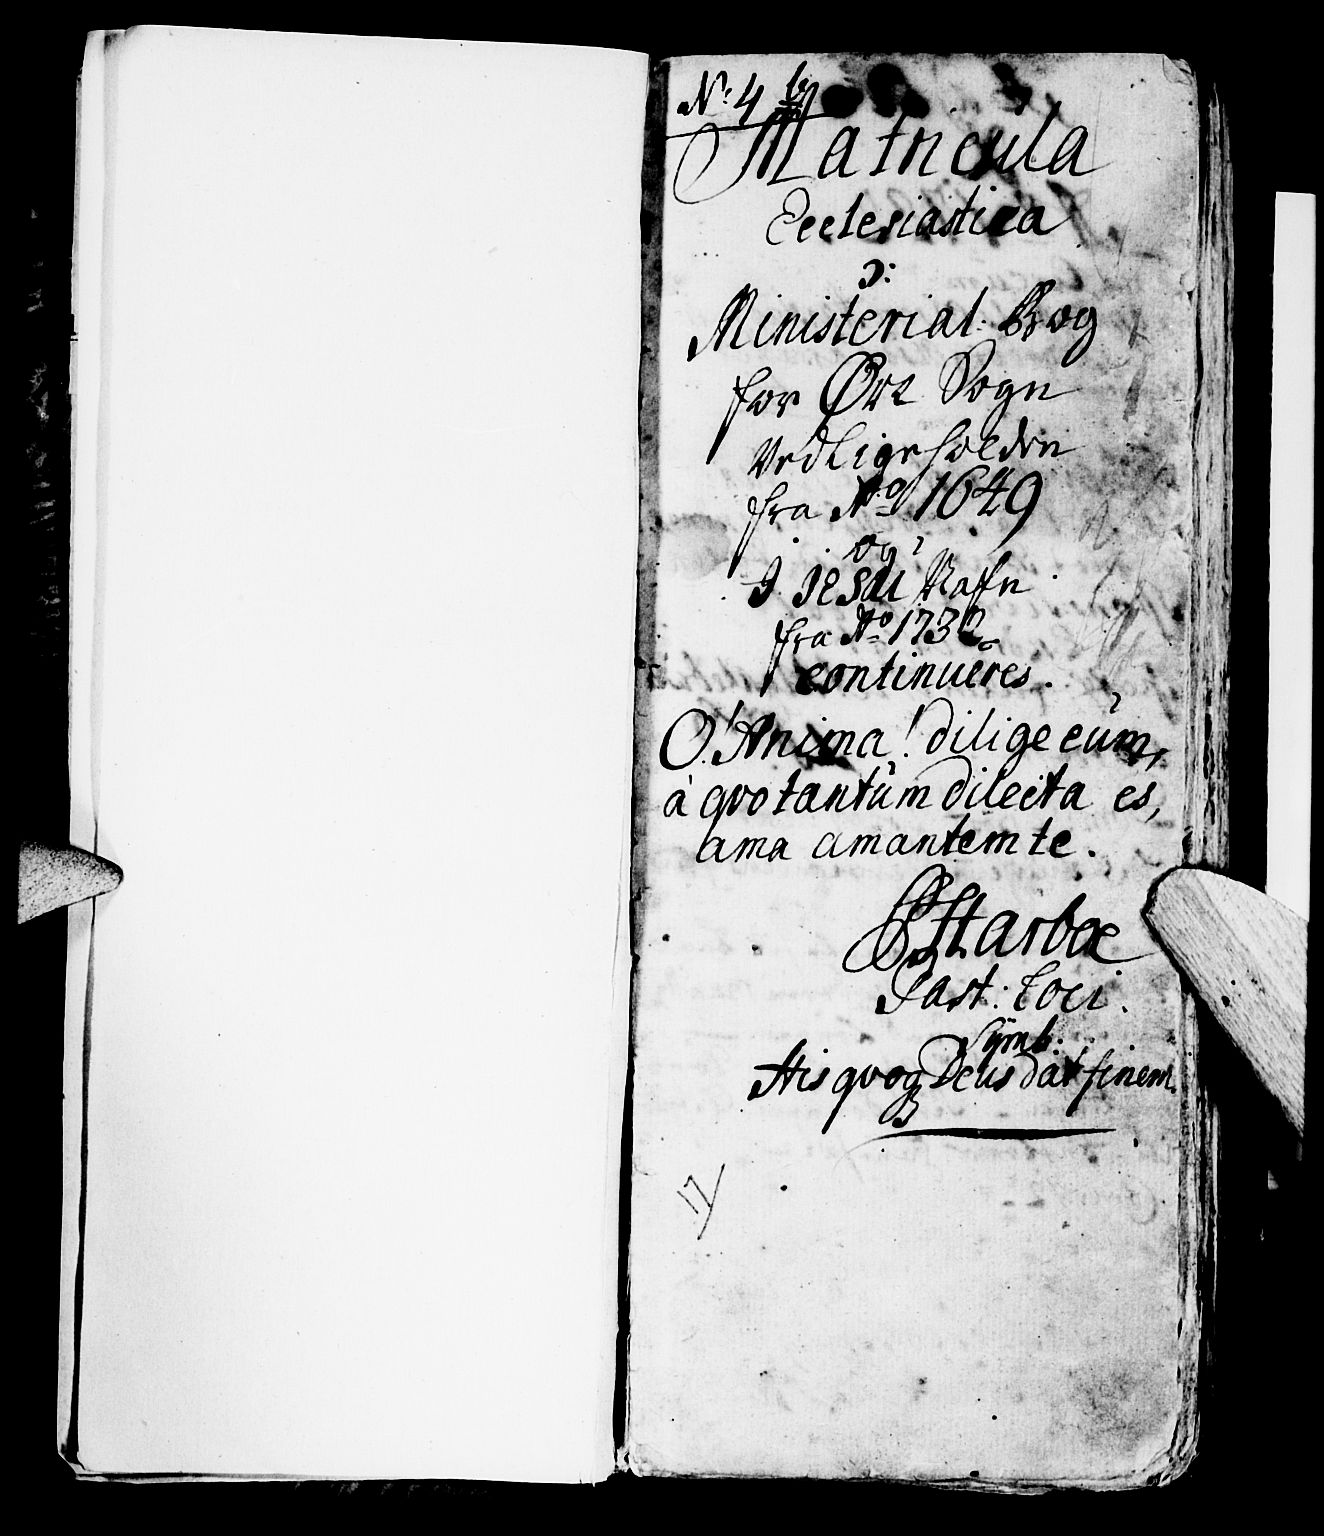 No: 4 b
Matricula
Ecclesiastica
ɔ:
Ministerial: Bog
for Ørt Sogn
Vedligeholden
fra No 1649
og
I Jesu Nafn
fra No 1732
continueres.
O! Anima! dilige eum,
à qvo tantum dilecta es,
ama amantem te.
Harboe
Past: Loci.
Symb:
His qvoq Deus dat finem.
17